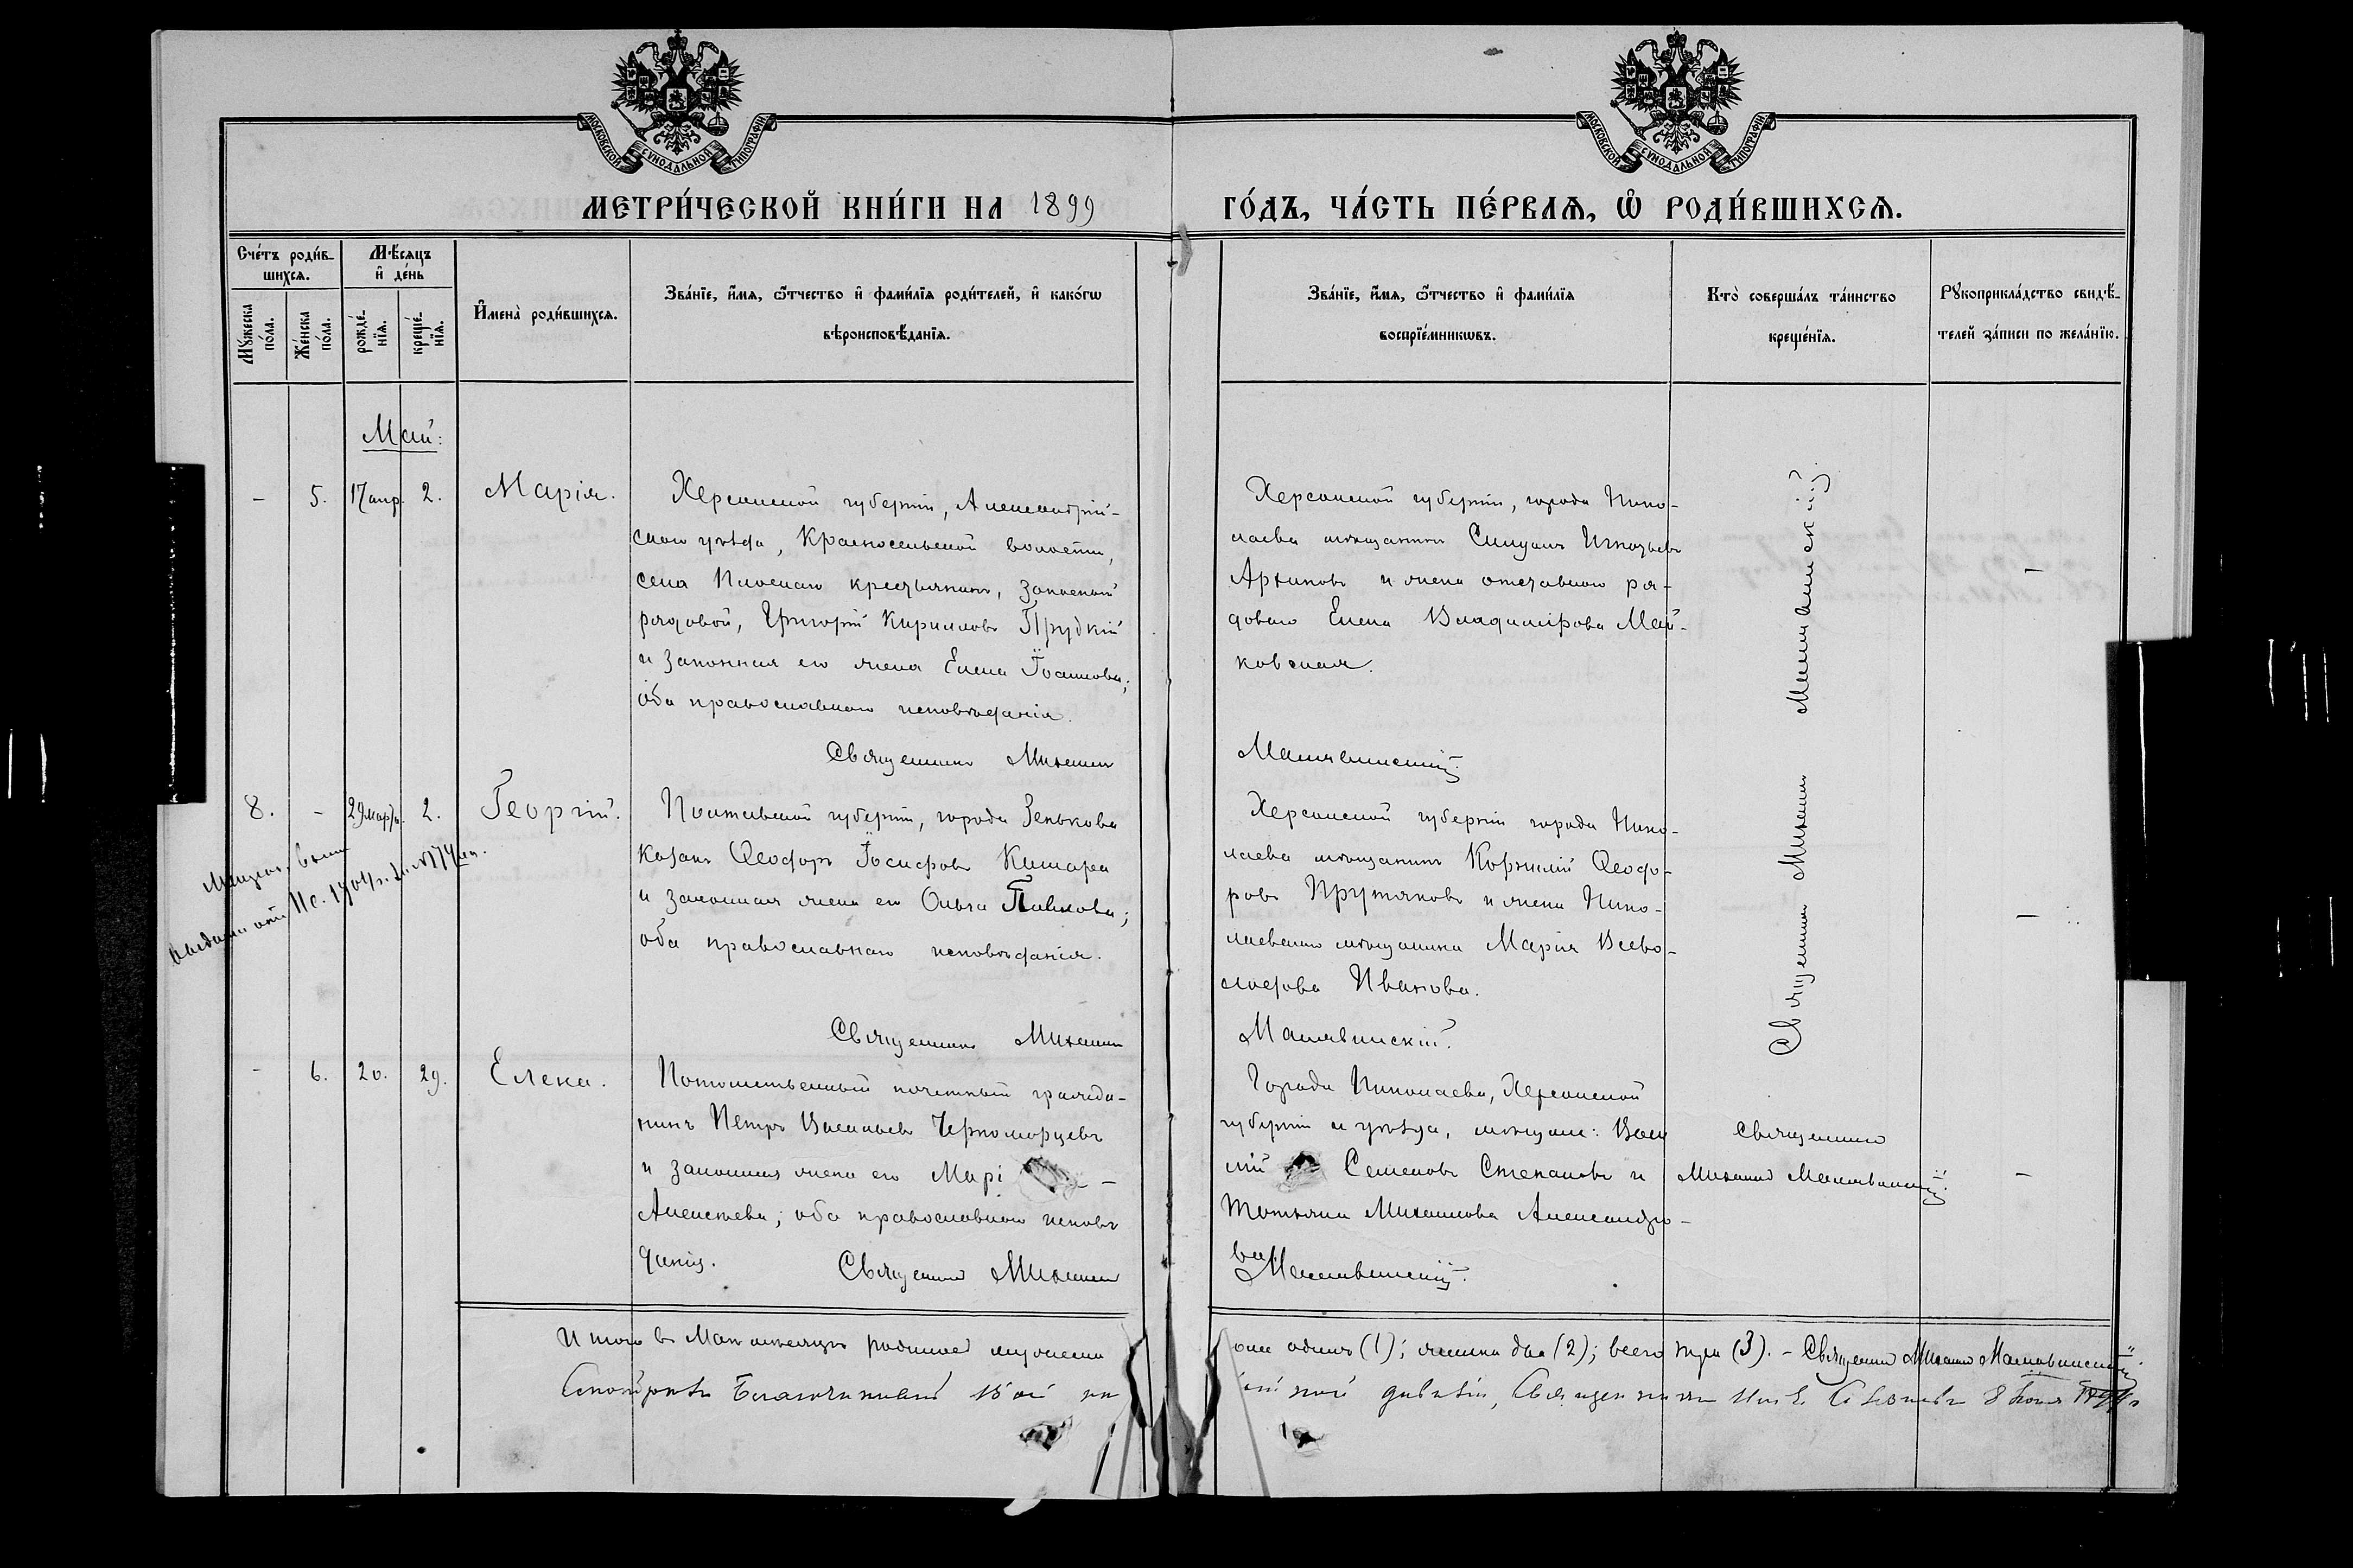 МОСКОВСКОЙ СѴНОДАЛЬНОЙ ТИПОГРАФІИ
МОСКОВСКОЙ СѴНОДАЛЬНОЙ ТИПОГРАФІИ
МЕТРИ́ЧЕСКОЙ КНИ́ГИ НА 1899
ГО́ДЪ, ЧА́СТЬ ПЕ́РВАѦ, Ѡ҆ РОДИ́ВШИХСѦ.
Сче́тъ роди́в-
шихсѧ.
Мꙋ́жеска
по́ла.
Же́нска
по́ла.
Мѣ́сѧцъ
и҆ де́нь
рожде́-
нїѧ.
креще́-
нїѧ.
И҆мена̀ роди́вшихсѧ.
Зва́нїе, и҆́мѧ, ѻ҆́тчество и҆ фами́лїѧ роди́телей, и҆ како́гѡ
вѣроисповѣ́данїѧ.
Зва́нїе, и҆́мѧ, ѻ҆́тчество и҆ фами́лїѧ
воспрїе́мникѡвъ.
Кто̀ соверша́лъ та́инство
креще́нїѧ.
Рꙋкоприкла́дство свидѣ́-
телей за́писи по жела́нїю.
Май:
- 5. 17 апр. 2. Марія.
Херсонской губерніи, Александрій-
скаго уѣзда, Красносельской волости,
села крестьянинъ, запасный
рядовой, Григорій Кирилловъ Прудкій
и законная его жена Елена Іоаннова;
оба православнаго исповѣданія.
Священникъ Михаилъ
Херсонской губерніи, города Нико-
лаева мѣщанинъ Игнатьевъ
Архиповъ и жена отставного ря-
дового Елена Владимірова Май-
ковская.
Малявинскій.
-
8. - 29 мар. 2. Георгій.
Полтавской губерніи, города Зенькова
казакъ Ѳеодоръ Іосифовъ
и законная жена его Ольга Павлова;
оба православнаго исповѣданія.
Священникъ Михаилъ
Херсонской губерніи города Нико-
лаева мѣщанинъ Корнилій Ѳеодо-
ровъ Прутяковъ и жена Нико-
лаевскаго мѣщанина Марія Всево-
лодова Иванова.
Малявинскій.
Священникъ Михаилъ Малявинскій.
-
- 6. 20. 29. Елена.
Потомственный почетный гражда-
нинъ Петръ Васильевъ Черноморцевъ
и законная жена его Марі -
Алексѣева; оба православнаго исповѣ
данія. Священникъ Михаилъ
Города Николаева, Херсонской
губерніи и уѣзда, мѣщане: Васи
лій Семеновъ Степановъ и
Татьяна Михаилова Александро-
ва. Малявинскій.
Священникъ
Михаилъ Малявинскій.
-
Итого въ Маѣ мѣсяцѣ родилось мужеска
пола одинъ (1); женска два (2); всего три (3). - Священникъ Михаилъ Малявинскій.
Смотрѣлъ Благочинный 15 ой
дивизіи, Священникъ 8 Іюня 1899 г.